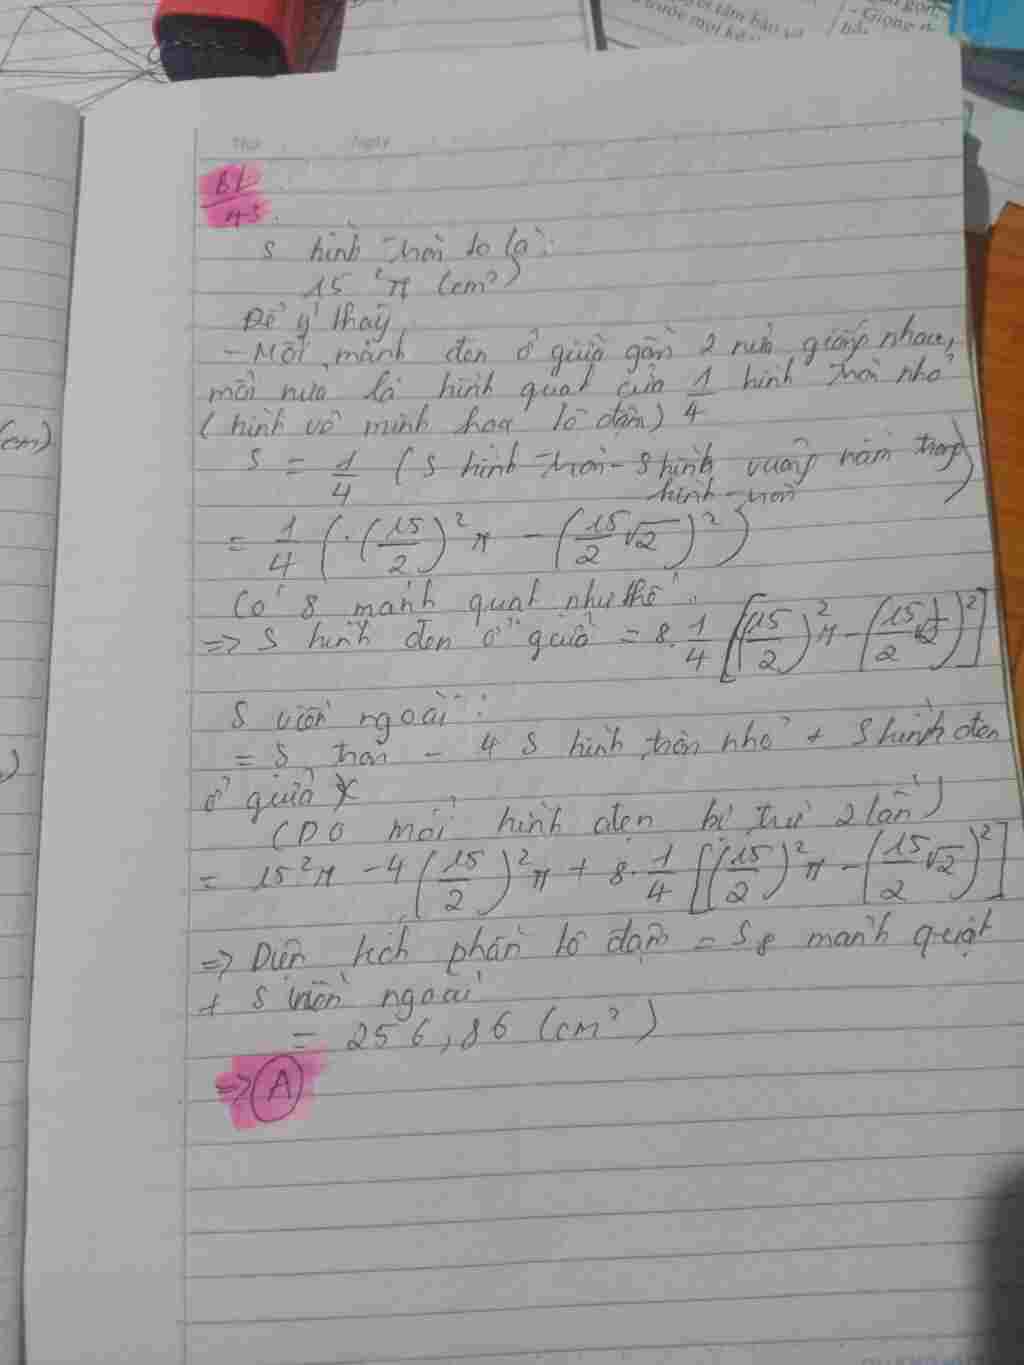 gọn,
- Giọng n
trước mọi kẻ
Thứ Ngày
BL
45
S hình tròn to là:
15²π (cm²)
Để ý thấy
- Mỗi mảnh đen ở giữa gồm 2 nửa giống nhau,
mỗi nửa là hình quạt của 1/4 hình tròn nhỏ
(hình vẽ minh hoạ tô đậm)
S = 1/4 (S hình tròn - S hình vuông nằm trong
hình tròn)
= 1/4 ((15/2)²π - (15/2 √2)²)
Có 8 mảnh quạt như thế
=> S hình đen ở giữa = 8.1/4 [(15/2)²π - (15/2 √2)²]
S viền ngoài:
= S tròn - 4 S hình tròn nhỏ + S hình đen
ở giữa
(Do mỗi hình đen bị trừ 2 lần)
= 15²π - 4(15/2)²π + 8.1/4 [(15/2)²π - (15/2 √2)²]
=> Diện tích phần tô đậm = S 8 mảnh quạt
+ S viền ngoài
= 256,86 (cm²)
=> A
(cm)